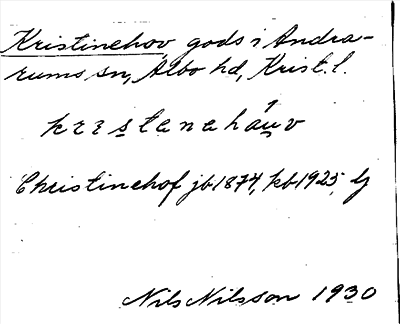 Kristinehov, gods i Andra-
rums sn, Albo hd, Krist. l.
krɪstənəháu̯v
Christinehof jb 1874, kb 1925
Nils Nilsson 1930